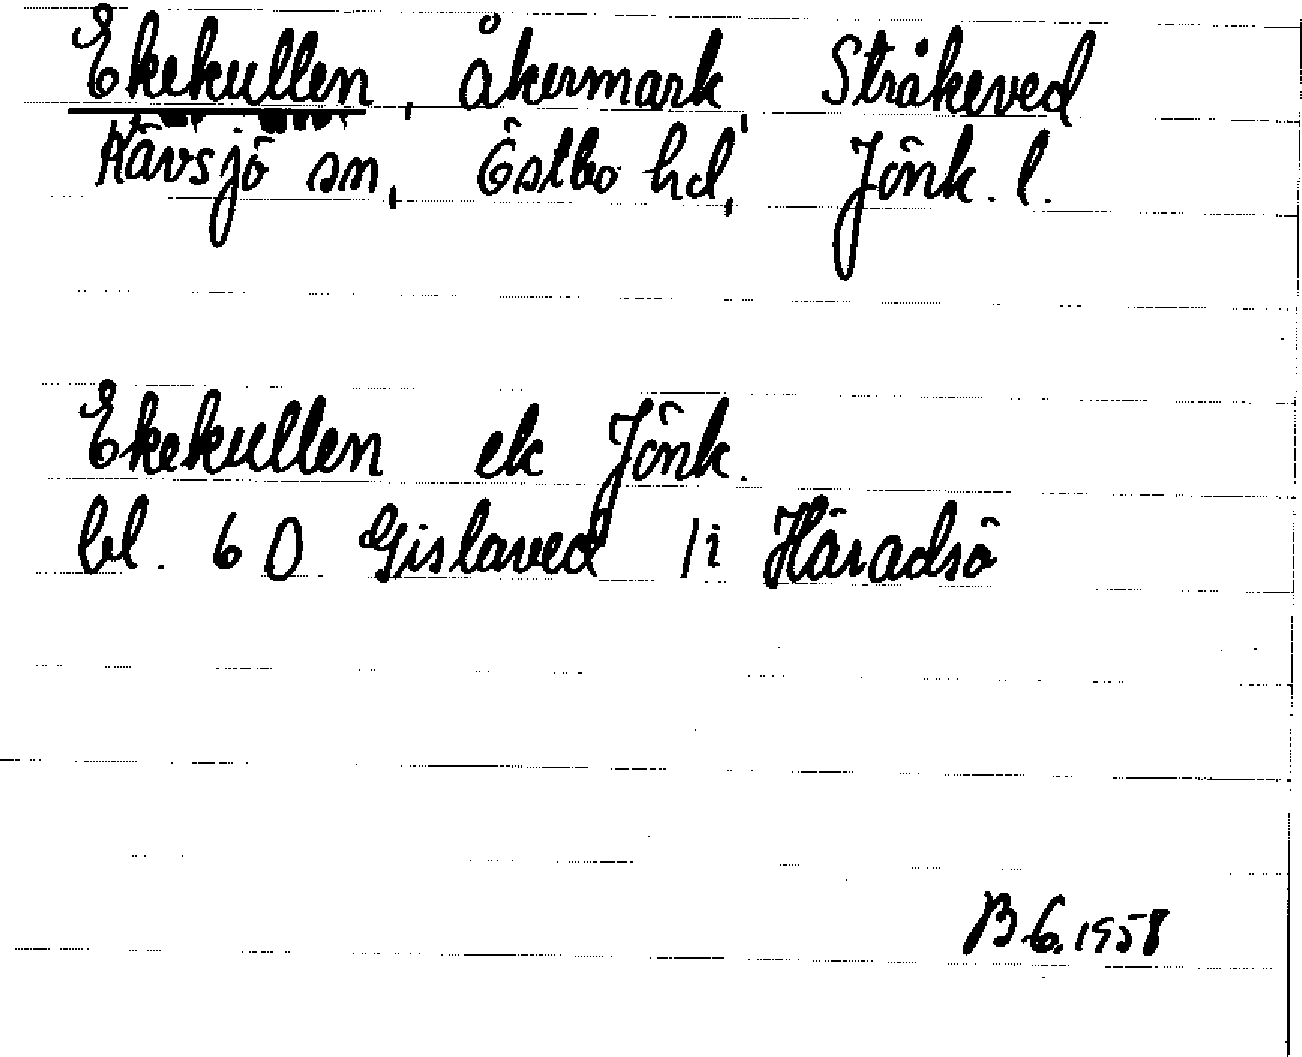 Ekekullen, åkermark, Stråkeved
Kävsjö sn, Östbo hd, Jönk. l.
Ekekullen ek Jönk.
bl. 6 O Gislaved /i Häradsö
B G. 1958